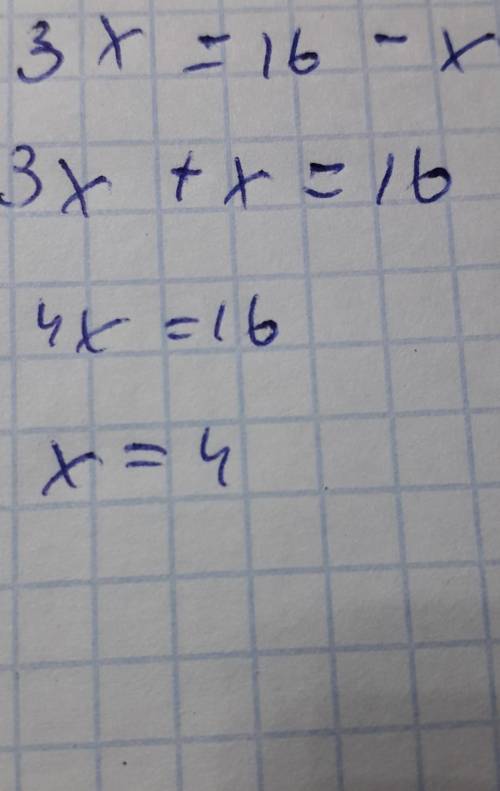 3x = 16 - x
3x + x = 16
4x = 16
x = 4